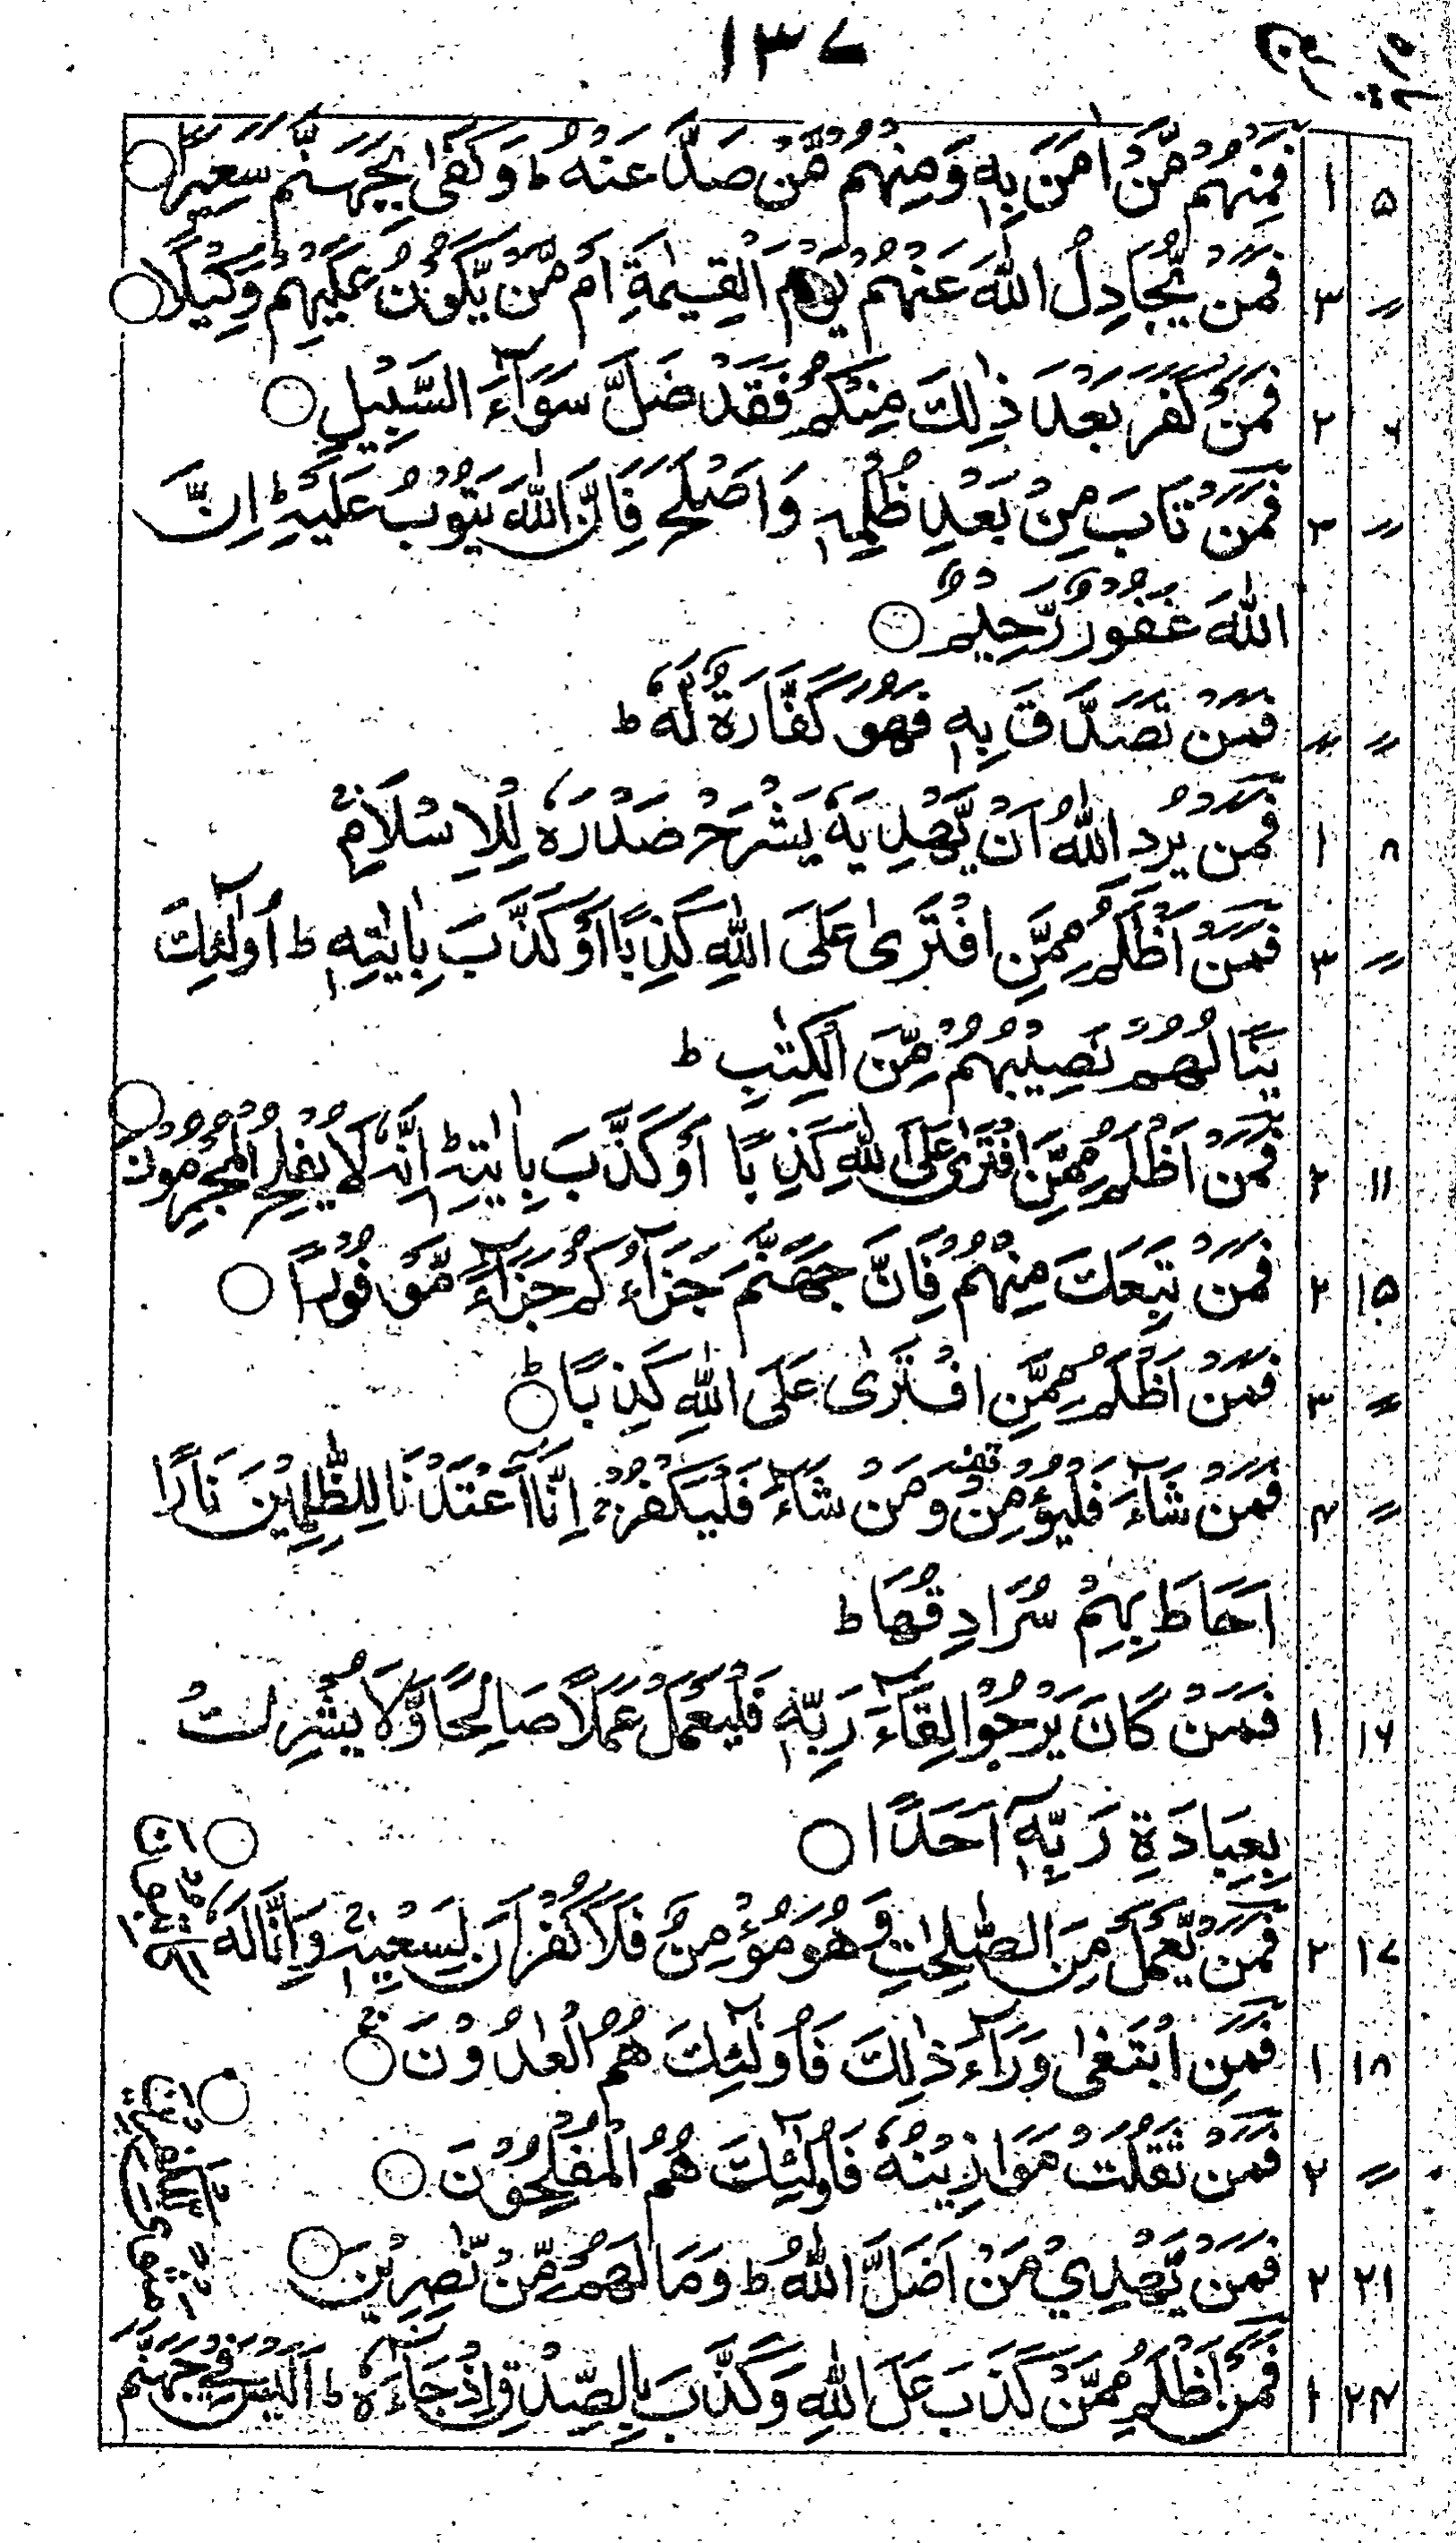 ۱۳۷
۵ ۱ فَمِنْهُمْ مَّنْ اٰمَنَ بِهٖ وَمِنْهُمْ مَّنْ صَدَّ عَنْهُ ؕ وَكَفٰى بِجَهَنَّمَ سَعِيْرًا ○
〃 ۳ فَمَنْ يُّجَادِلُ اللّٰهَ عَنْهُمْ يَوْمَ الْقِيٰمَةِ اَمْ مَّنْ يَّكُوْنُ عَلَيْهِمْ وَكِيْلًا ○
۶ ۲ فَمَنْ كَفَرَ بَعْدَ ذٰلِكَ مِنْكُمْ فَقَدْ ضَلَّ سَوَآءَ السَّبِيْلِ ○
〃 ۳ فَمَنْ تَابَ مِنْ بَعْدِ ظُلْمِهٖ وَاَصْلَحَ فَاِنَّ اللّٰهَ يَتُوْبُ عَلَيْهِ ؕ اِنَّ
اللّٰهَ غَفُوْرٌ رَّحِيْمٌ ○
〃 〃 فَمَنْ تَصَدَّقَ بِهٖ فَهُوَ كَفَّارَةٌ لَّهٗ ؕ
۸ ۱ فَمَنْ يُّرِدِ اللّٰهُ اَنْ يَّهْدِيَهٗ يَشْرَحْ صَدْرَهٗ لِلْاِسْلَامِ ۚ
〃 ۳ فَمَنْ اَظْلَمُ مِمَّنِ افْتَرٰى عَلَى اللّٰهِ كَذِبًا اَوْ كَذَّبَ بِاٰيٰتِهٖ ؕ اُولٰٓئِكَ
يَنَالُهُمْ نَصِيْبُهُمْ مِّنَ الْكِتٰبِ ؕ
۱۱ ۲ فَمَنْ اَظْلَمُ مِمَّنِ افْتَرٰى عَلَى اللّٰهِ كَذِبًا اَوْ كَذَّبَ بِاٰيٰتِهٖ ؕ اِنَّهٗ لَا يُفْلِحُ الْمُجْرِمُوْنَ ○
۱۵ ۲ فَمَنْ تَبِعَكَ مِنْهُمْ فَاِنَّ جَهَنَّمَ جَزَآؤُكُمْ جَزَآءً مَّوْفُوْرًا ○
〃 ۳ فَمَنْ اَظْلَمُ مِمَّنِ افْتَرٰى عَلَى اللّٰهِ كَذِبًا ؕ ○
〃 ۴ فَمَنْ شَآءَ فَلْيُؤْمِنْ وَمَنْ شَآءَ فَلْيَكْفُرْ ۙ اِنَّآ اَعْتَدْنَا لِلظّٰلِمِيْنَ نَارًا
اَحَاطَ بِهِمْ سُرَادِقُهَا ؕ
۱۶ ۱ فَمَنْ كَانَ يَرْجُوْا لِقَآءَ رَبِّهٖ فَلْيَعْمَلْ عَمَلًا صَالِحًا وَّلَا يُشْرِكْ
بِعِبَادَةِ رَبِّهٖٓ اَحَدًا ○
۱۷ ۲ فَمَنْ يَّعْمَلْ مِنَ الصّٰلِحٰتِ وَهُوَ مُؤْمِنٌ فَلَا كُفْرَانَ لِسَعْيِهٖ ۚ وَاِنَّا لَهٗ كٰتِبُوْنَ ○
۱۸ ۱ فَمَنِ ابْتَغٰى وَرَآءَ ذٰلِكَ فَاُولٰٓئِكَ هُمُ الْعٰدُوْنَ ○
〃 ۲ فَمَنْ ثَقُلَتْ مَوَازِيْنُهٗ فَاُولٰٓئِكَ هُمُ الْمُفْلِحُوْنَ ○
۲۱ ۲ فَمَنْ يَّهْدِيْ مَنْ اَضَلَّ اللّٰهُ ؕ وَمَا لَهُمْ مِّنْ نّٰصِرِيْنَ ○
۲۴ ۱ فَمَنْ اَظْلَمُ مِمَّنْ كَذَبَ عَلَى اللّٰهِ وَكَذَّبَ بِالصِّدْقِ اِذْ جَآءَهٗ ؕ اَلَيْسَ فِيْ جَهَنَّمَ
مَثْوًى لِّلْكٰفِرِيْنَ ○